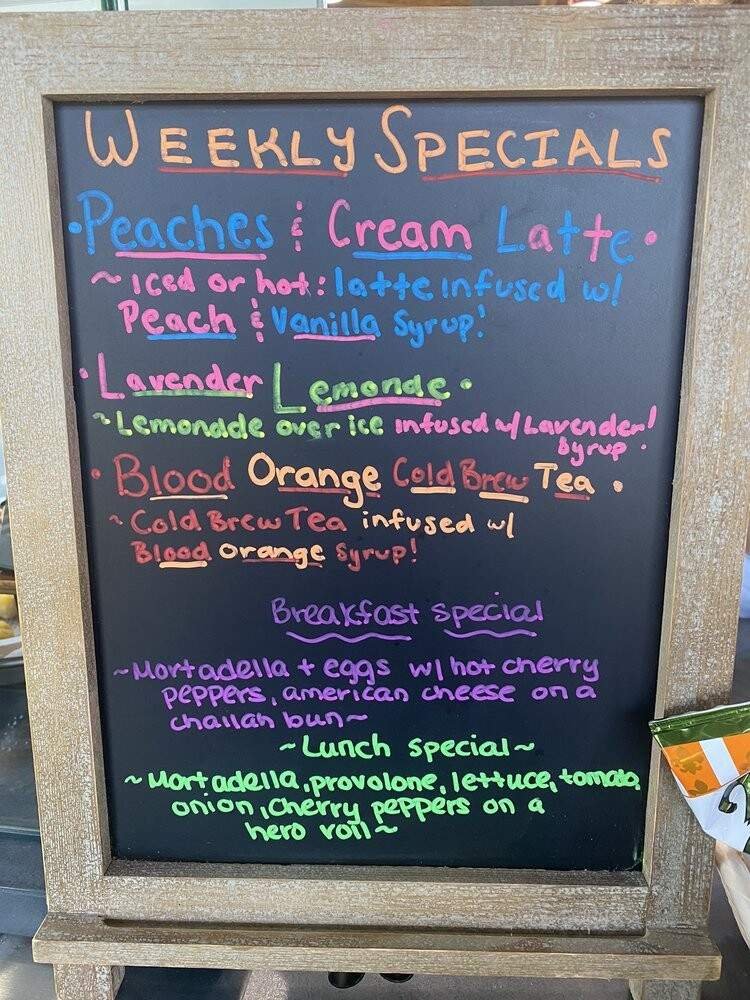 WEEKLY SPECIALS
•Peaches & Cream Latte•
~Iced or hot: latte infused w/
Peach & Vanilla Syrup!
•Lavender Lemonde•
~Lemonade over ice infused w/ Lavender!
Syrup
•Blood Orange Cold Brew Tea•
~Cold Brew Tea infused w/
Blood orange Syrup!
Breakfast special
~Mortadella + eggs w/ hot cherry
peppers, american cheese on a
challah bun~
~Lunch special~
~Mortadella, provolone, lettuce, tomato,
onion, cherry peppers on a
hero roll~